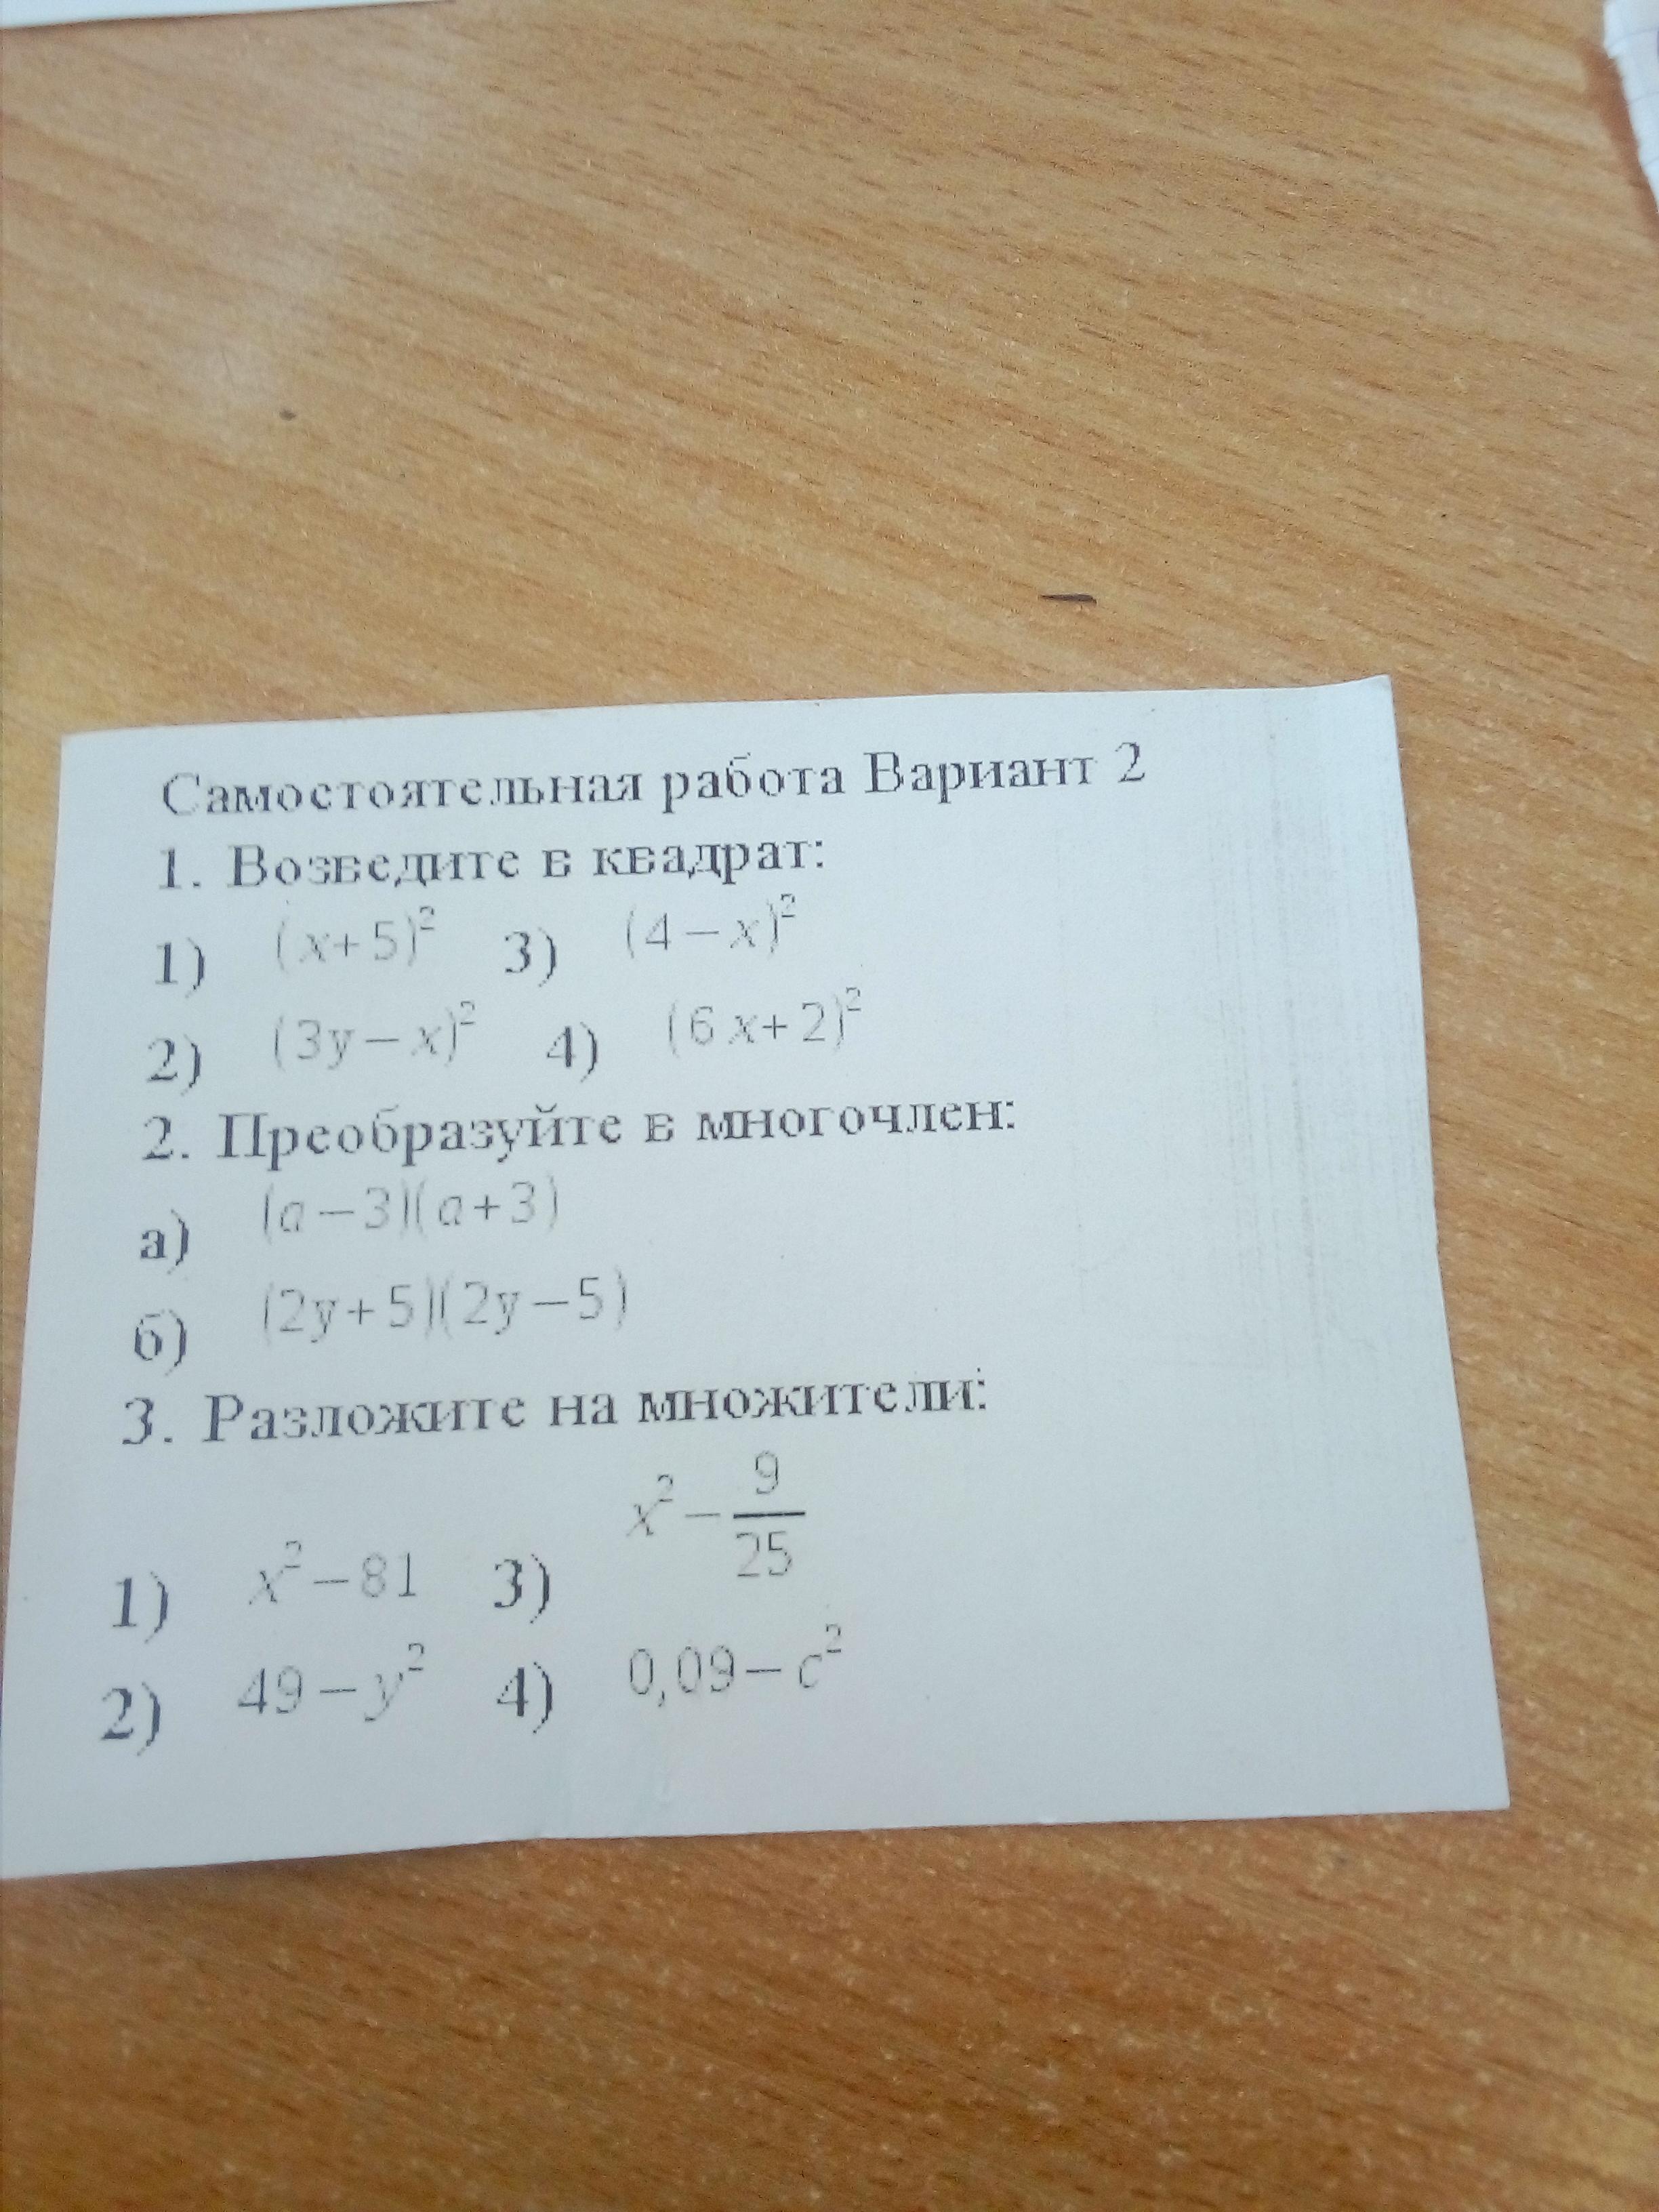 Самостоятельная работа Вариант 2
1. Возведите в квадрат:
1) (x+5)² 3) (4−x)²
2) (3y−x)² 4) (6x+2)²
2. Преобразуйте в многочлен:
а) (a−3)(a+3)
б) (2y+5)(2y−5)
3. Разложите на множители:
1) x²−81 3) x²−9/25
2) 49−y² 4) 0,09−c²